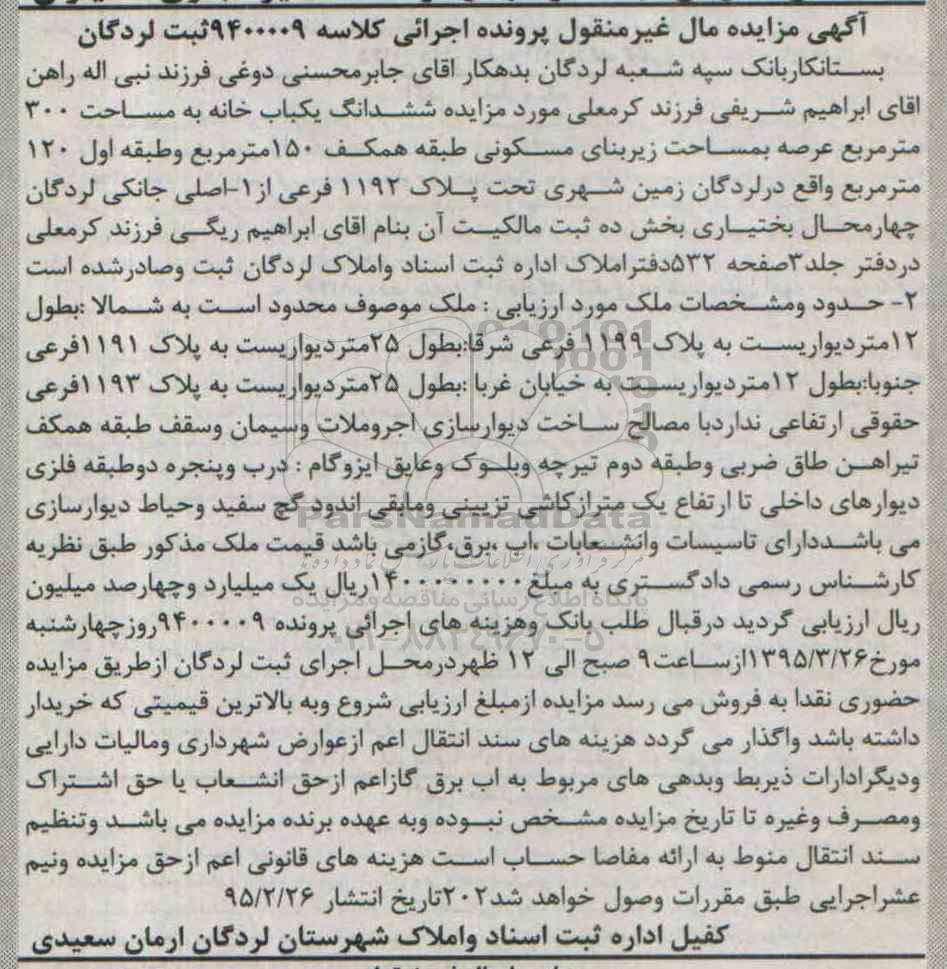 آگهی مزایده مال غیرمنقول پرونده اجرائی کلاسه ۹۴۰۰۰۰۹ثبت لردگان
بستانکاربانک سپه شعبه لردگان بدهکار اقای جابرمحسنی دوغی فرزند نبی اله راهن
اقای ابراهیم شریفی فرزند کرمعلی مورد مزایده ششدانگ یکباب خانه به مساحت ۳۰۰
مترمربع عرصه بمساحت زیربنای مسکونی طبقه همکف ۱۵۰مترمربع وطبقه اول ۱۲۰
مترمربع واقع درلردگان زمین شهری تحت پلاک ۱۱۹۲ فرعی از۱-اصلی جانکی لردگان
چهارمحال بختیاری بخش ده ثبت مالکیت آن بنام اقای ابراهیم ریگی فرزند کرمعلی
دردفتر جلد۳صفحه ۵۳۲دفتراملاک اداره ثبت اسناد واملاک لردگان ثبت وصادرشده است
۲- حدود ومشخصات ملک مورد ارزیابی : ملک موصوف محدود است به شمالا :بطول
۱۲متردیواریست به پلاک ۱۱۹۹ فرعی شرقا:بطول ۲۵متردیواریست به پلاک ۱۱۹۱فرعی
جنوبا:بطول ۱۲متردیواریست به خیابان غربا :بطول ۲۵متردیواریست به پلاک ۱۱۹۳فرعی
حقوقی ارتفاعی نداردبا مصالح ساخت دیوارسازی اجروملات وسیمان وسقف طبقه همکف
تیراهن طاق ضربی وطبقه دوم تیرچه وبلوک وعایق ایزوگام : درب وپنجره دوطبقه فلزی
دیوارهای داخلی تا ارتفاع یک مترازکاشی تزیینی ومابقی اندود گچ سفید وحیاط دیوارسازی
می باشددارای تاسیسات وانشعابات ،اب ،برق،گازمی باشد قیمت ملک مذکور طبق نظریه
کارشناس رسمی دادگستری به مبلغ۱۴۰۰۰۰۰۰۰۰ریال یک میلیارد وچهارصد میلیون
ریال ارزیابی گردید درقبال طلب بانک وهزینه های اجرائی پرونده ۹۴۰۰۰۰۹روزچهارشنبه
مورخ۱۳۹۵/۳/۲۶ازساعت۹ صبح الی ۱۲ ظهردرمحل اجرای ثبت لردگان ازطریق مزایده
حضوری نقدا به فروش می رسد مزایده ازمبلغ ارزیابی شروع وبه بالاترین قیمیتی که خریدار
داشته باشد واگذار می گردد هزینه های سند انتقال اعم ازعوارض شهرداری ومالیات دارایی
ودیگرادارات ذیربط وبدهی های مربوط به اب برق گازاعم ازحق انشعاب یا حق اشتراک
ومصرف وغیره تا تاریخ مزایده مشخص نبوده وبه عهده برنده مزایده می باشد وتنظیم
سند انتقال منوط به ارائه مفاصا حساب است هزینه های قانونی اعم ازحق مزایده ونیم
عشراجرایی طبق مقررات وصول خواهد شد۲۰۲تاریخ انتشار ۹۵/۲/۲۶
کفیل اداره ثبت اسناد واملاک شهرستان لردگان ارمان سعیدی
ParsNamadData
پایگاه اطلاع رسانی مناقصه ومزایده
۰۲۱-۸۸۳۴۹۶۷۰-۵